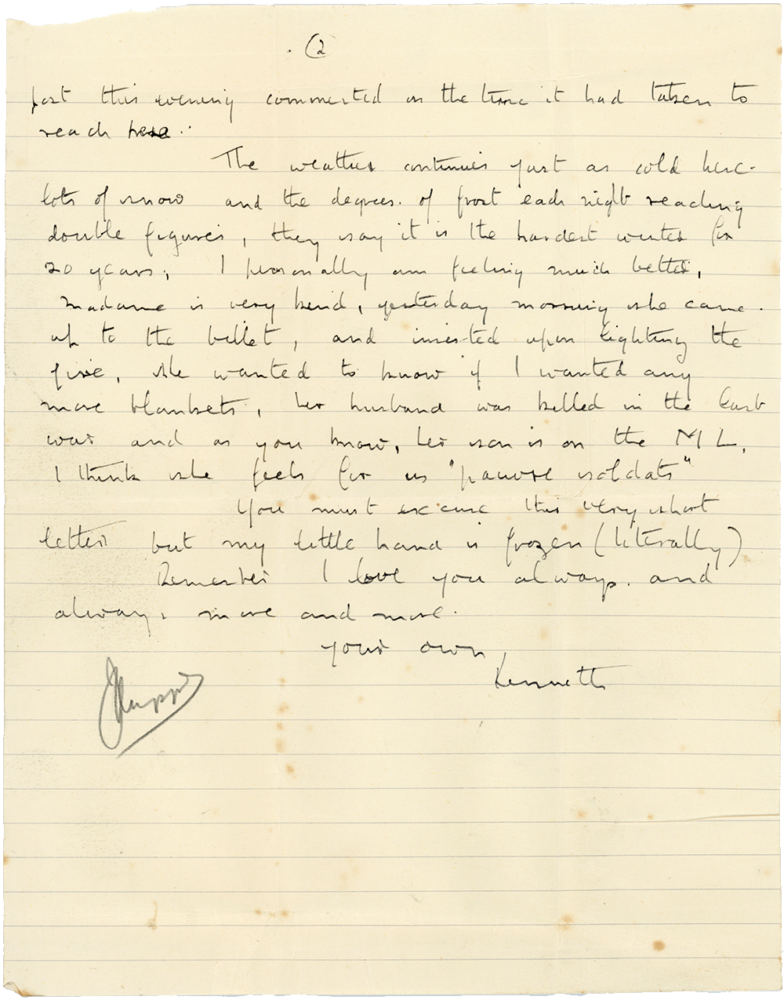 (2
post this evening commented on the time it had taken to
reach here.
The weather continues just as cold here -
lots of snow and the degrees of frost each night reaching
double figures, they say it is the hardest winter for
20 years; I personally am feeling much better,
Madame is very kind, yesterday morning she came
up to the billet, and insisted upon lighting the
fire, she wanted to know if I wanted any
more blankets, her husband was killed in the last
war and as you know, her son is on the M L,
I think she feels for us "pauvre soldats"
You must excuse this very short
letter but my little hand is frozen (literally)
Remember I love you always and
always, more and more.
Your own,
Kenneth